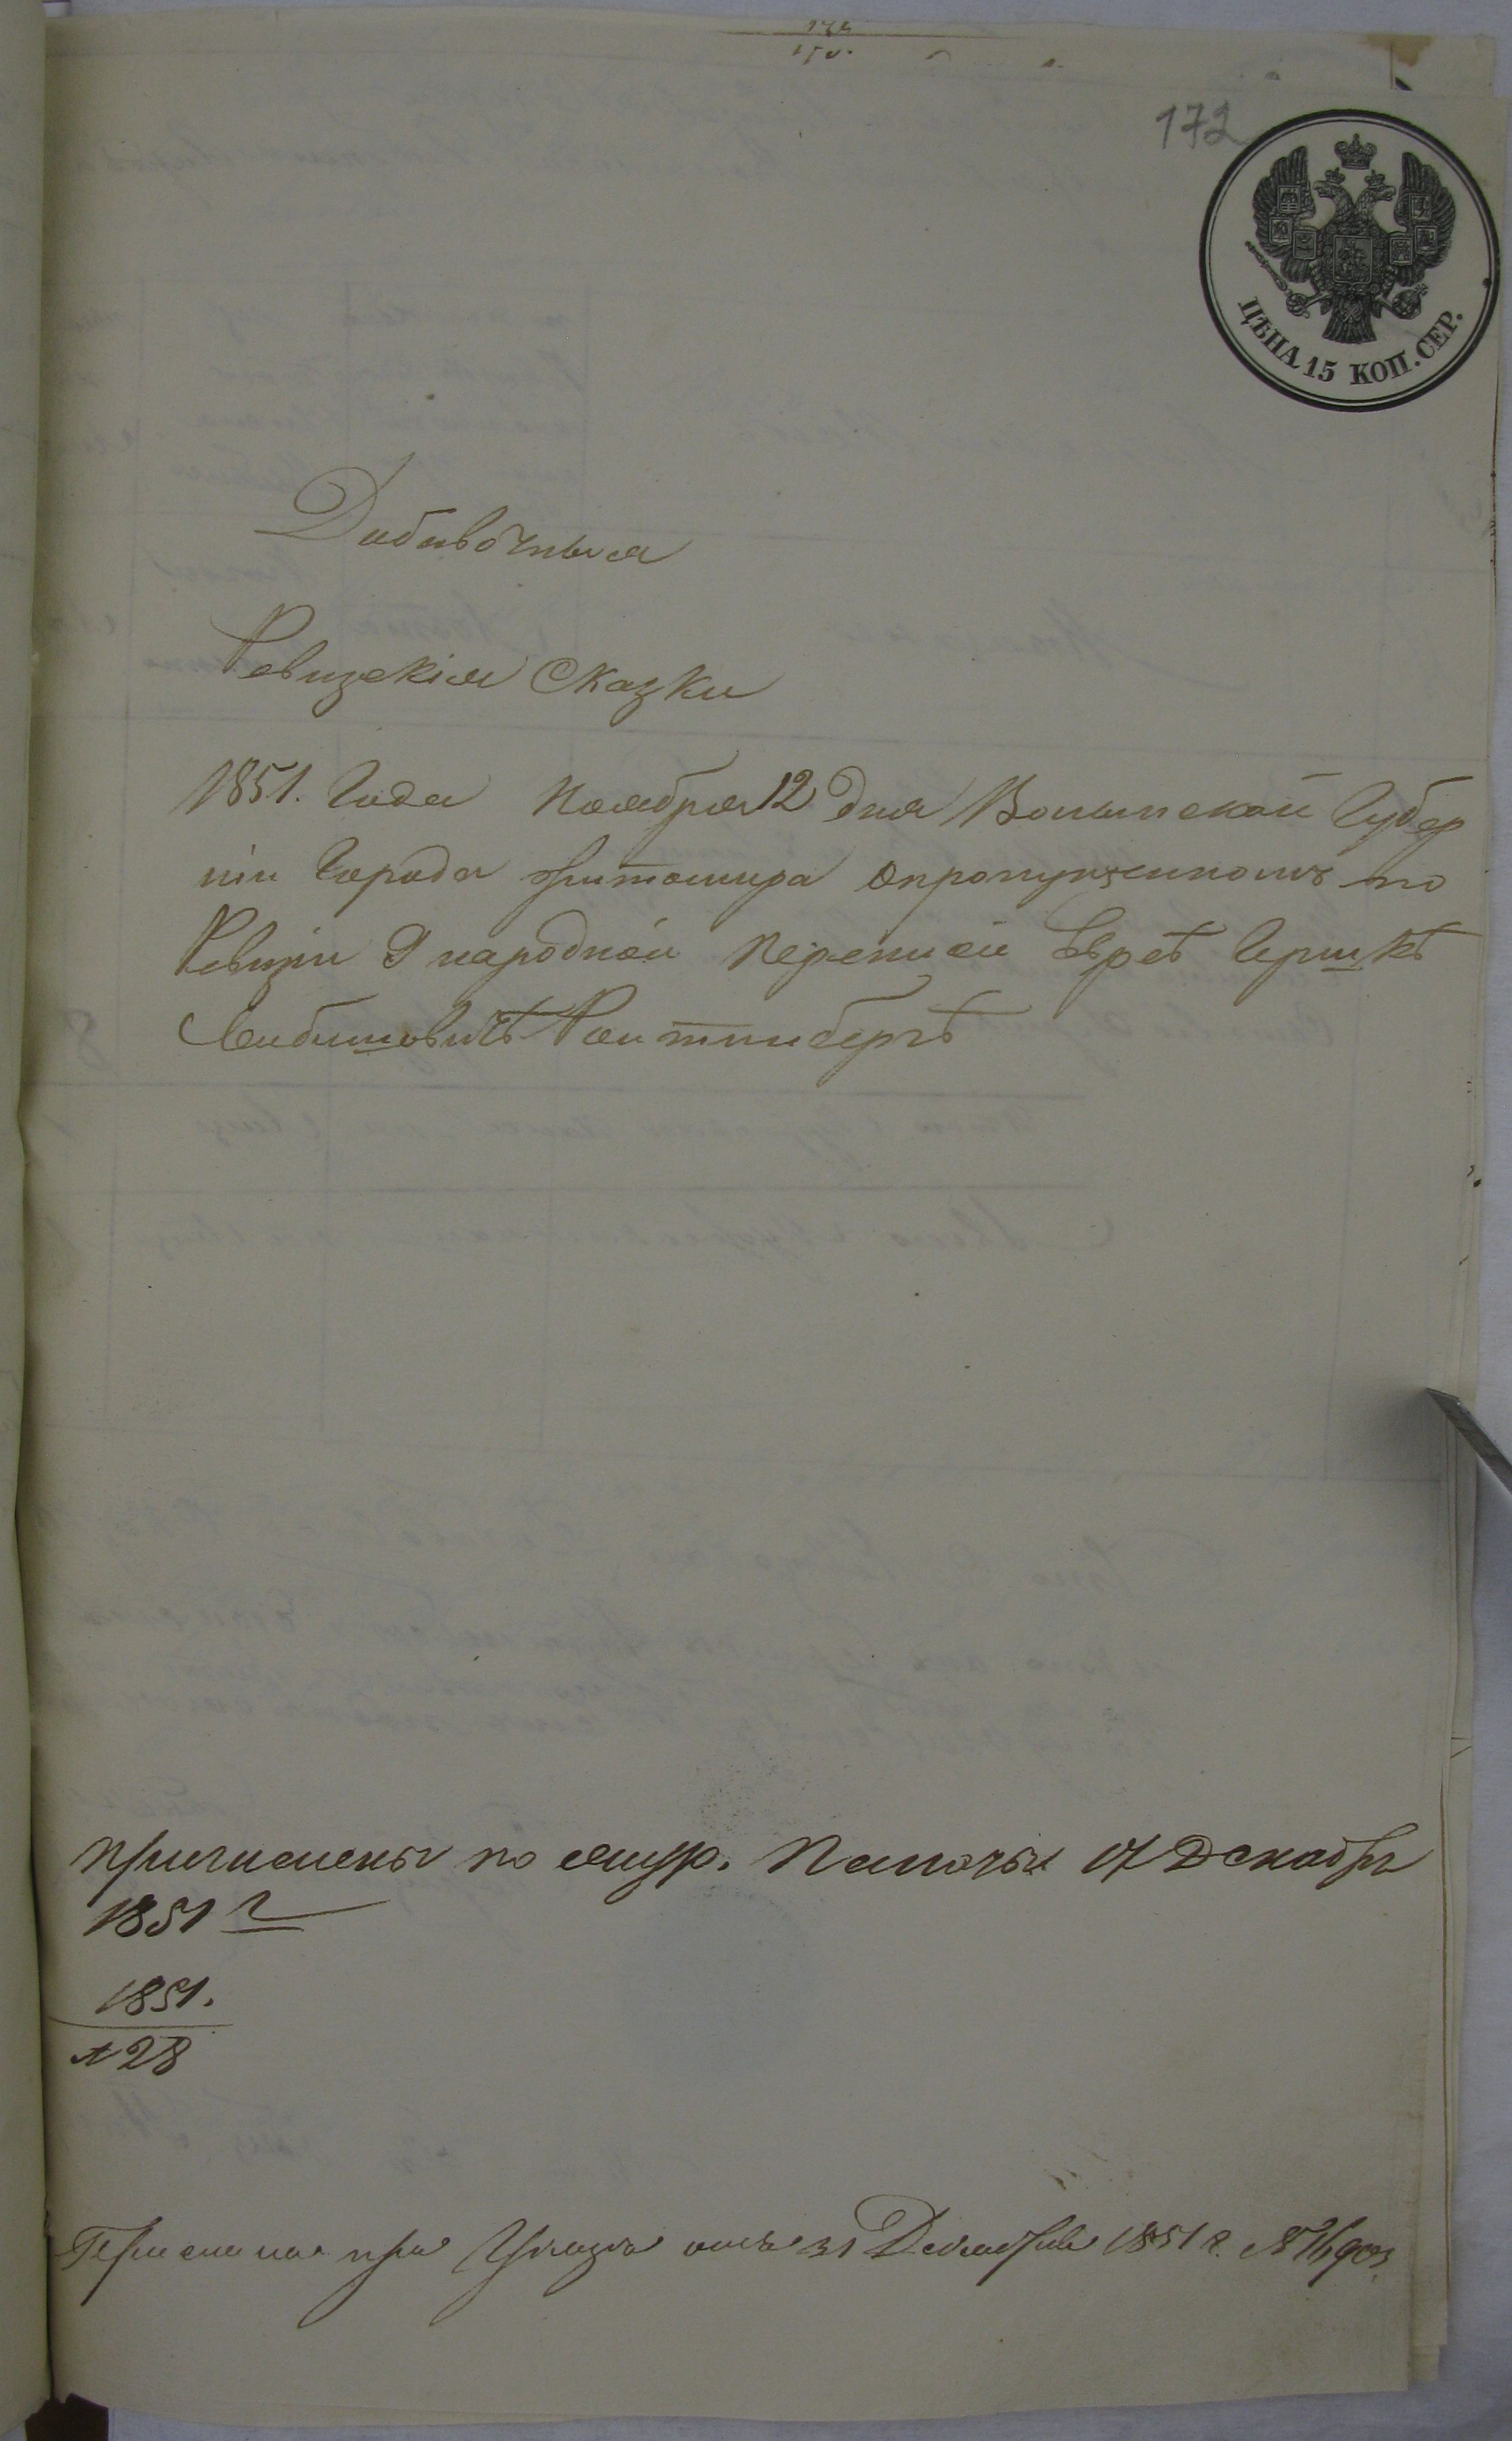 172
ЦѢНА 15 КОП. СЕР.
Добавочныя
Ревизскія Сказки
1851. Года Ноября 12 дня Волынской Губер
ніи Города Житомира О пропущенномъ по
Ревизіи 9 народной переписи Еврѣѣ Гершкѣ
Лейбишовичѣ Роиттинбергѣ
Причислены по 17 Декабря
1851 г
1851.
№ 28
При Указѣ отъ 31 Декабря 1851 г. №